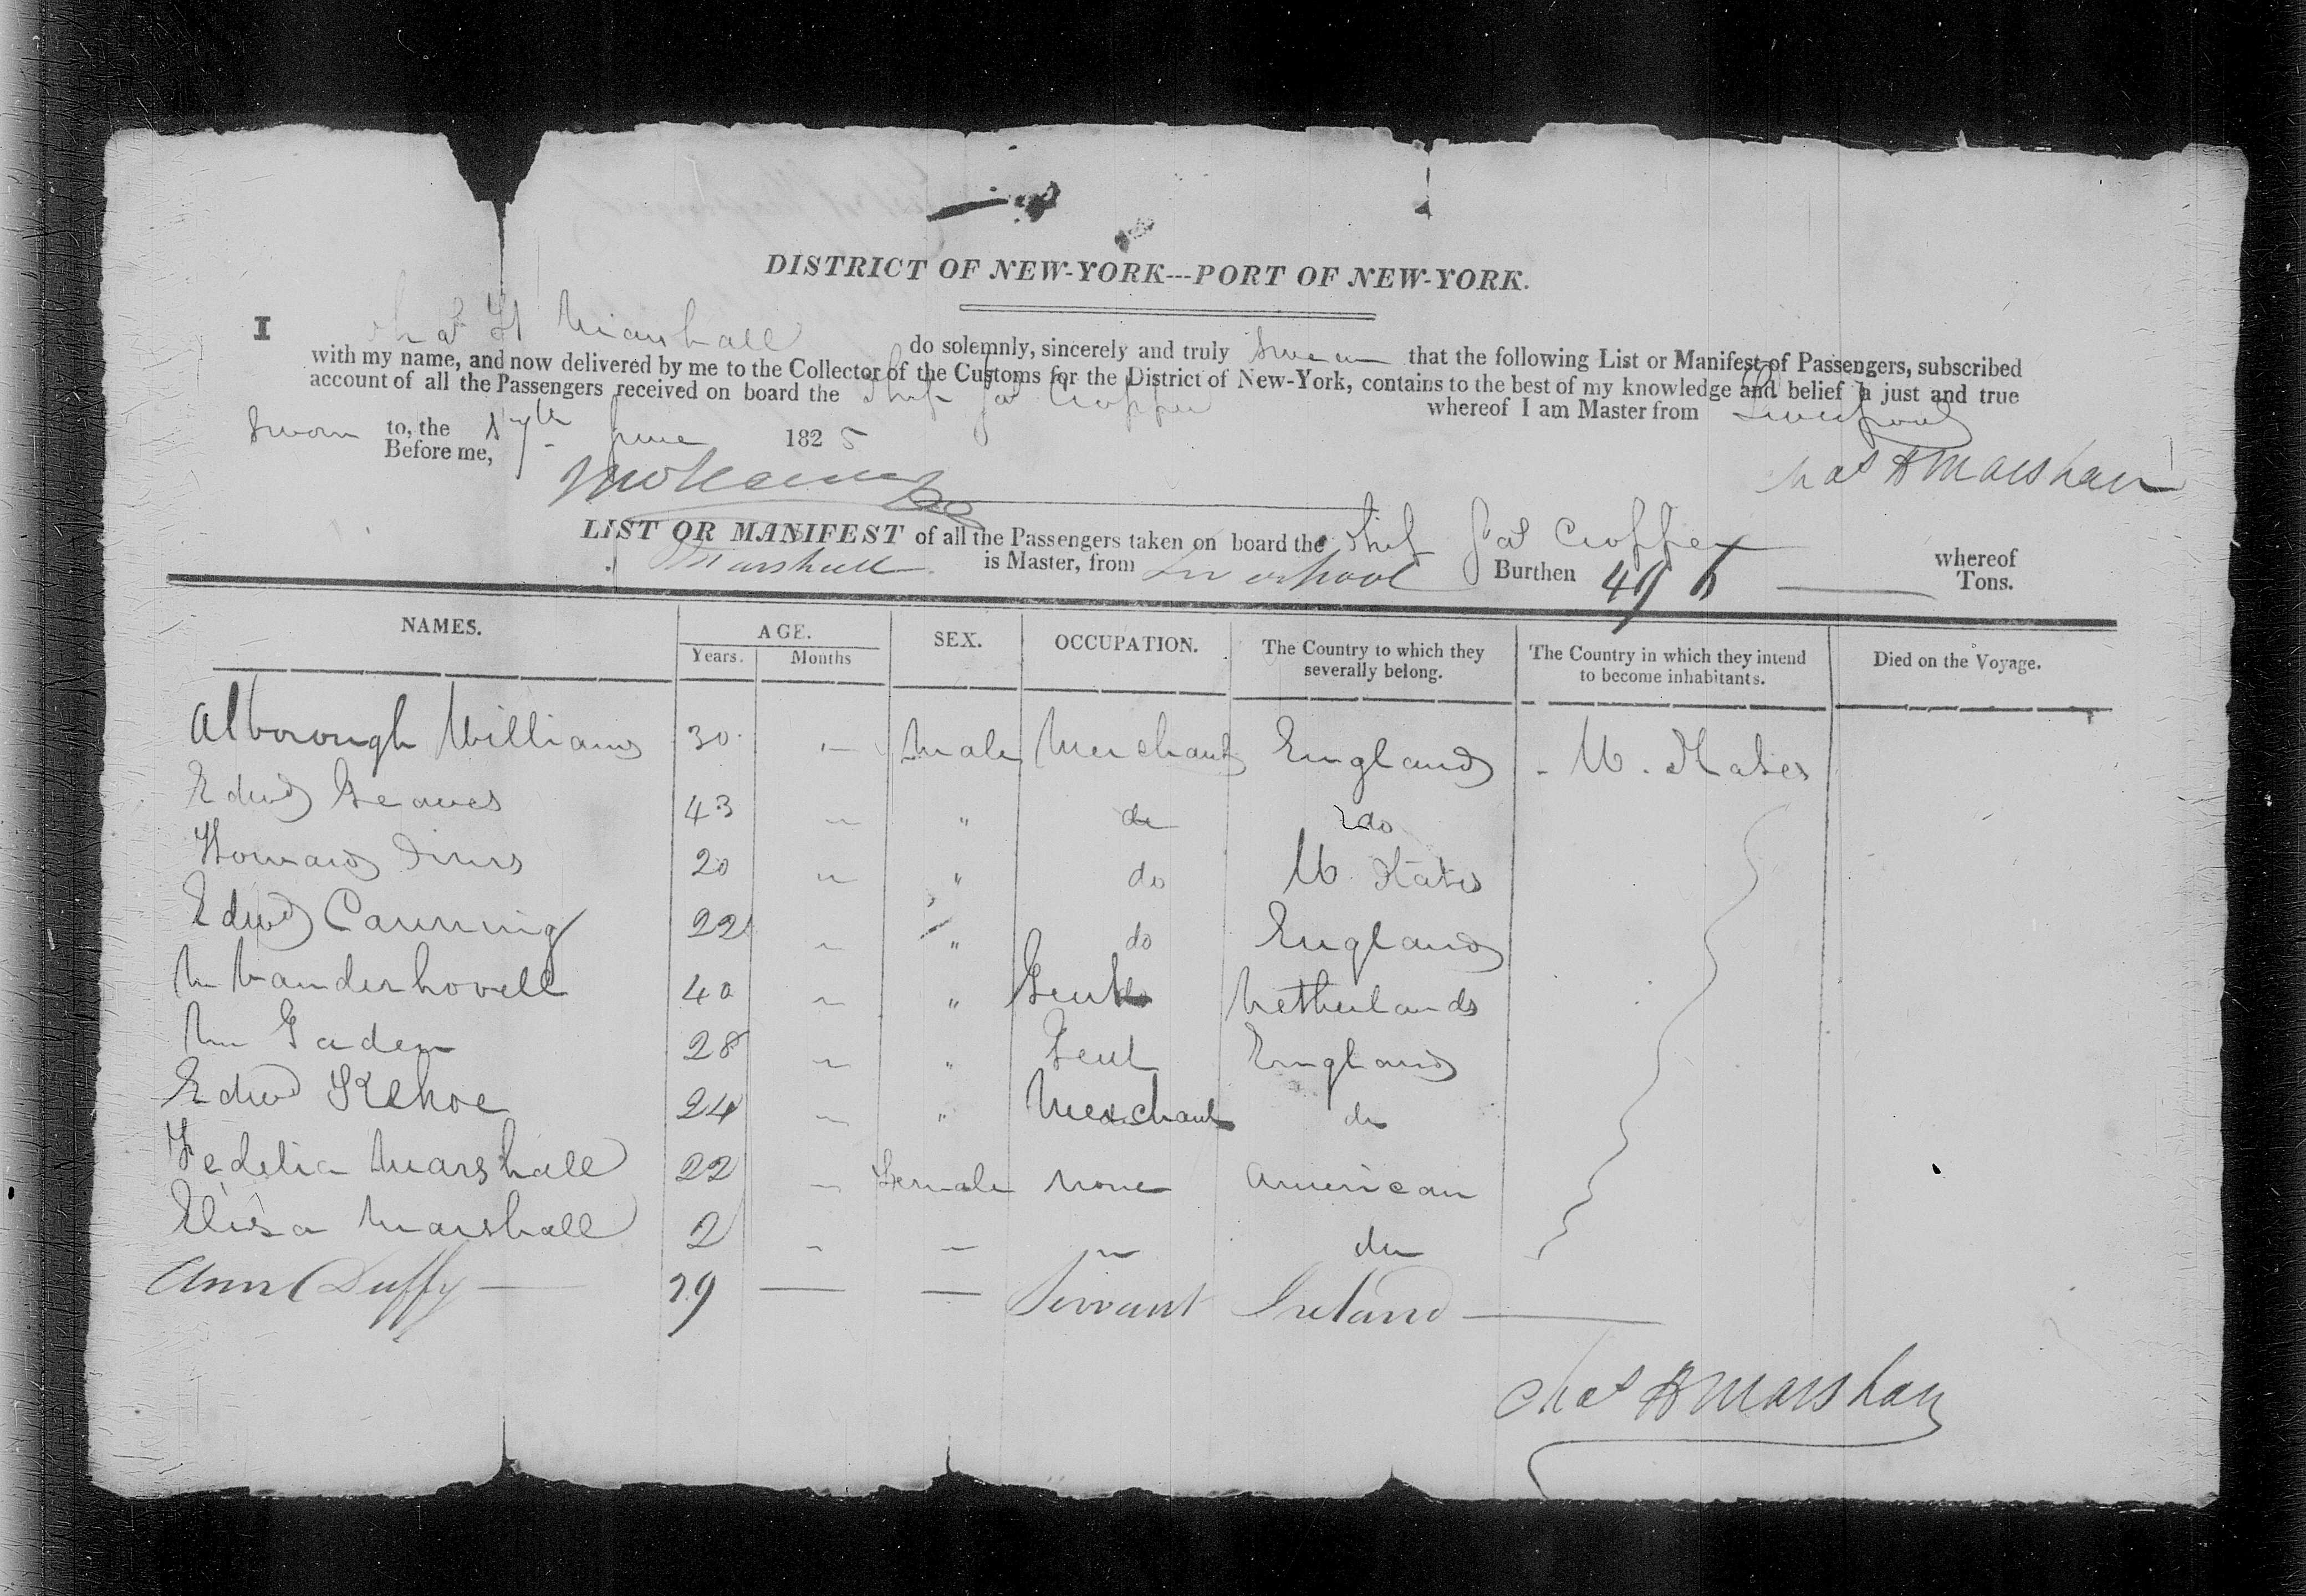 DISTRICT OF NEW-YORK---PORT OF NEW-YORK.
I Chas H Marshall do solemnly, sincerely and truly Swear that the following List or Manifest of Passengers, subscribed
with my name, and now delivered by me to the Collector of the Customs for the District of New-York, contains to the best of my knowledge and belief a just and true
account of all the Passengers received on board the Ship Jas Cropper whereof I am Master from Liverpool
Sworn to, the 17th June 1825
Before me, Chas H Marshall
LIST OR MANIFEST of all the Passengers taken on board the Ship Jas Cropper whereof
Marshall is Master, from Liverpool Burthen 496 Tons.
NAMES. AGE. SEX. OCCUPATION. The Country to which they severally belong. The Country in which they intend to become inhabitants. Died on the Voyage.
Years. Months
Alborough Williams 30 — Male Merchant England - U. States
Edwd 43 — " do do
20 — " do U. States
Edwd Canning 22 — " do England
M Vanderhovell 40 — " Gent Netherlands
Gaden 28 — " Gent England
Edwd Kehoe 24 — " Merchant do
Fedelia Marshall 22 — Female None American
Elisa Marshall 2 — — — do
Ann Duffy — 29 — — Servant Ireland —
Chas H Marshall